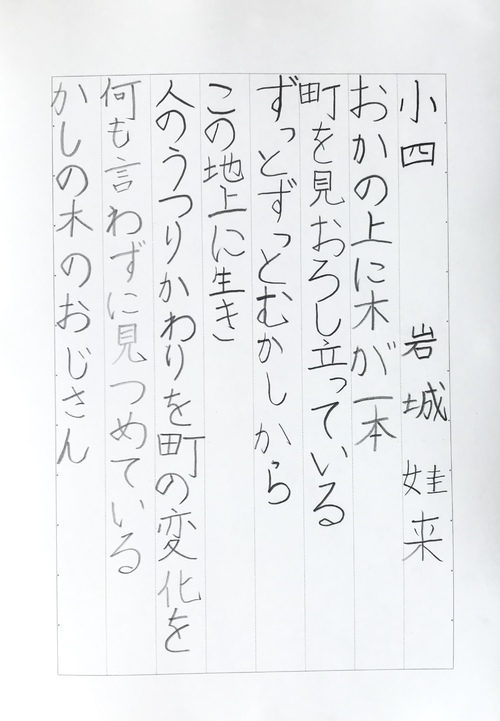 小四 岩城 娃来
おかの上に木が一本
町を見おろし立っている
ずっとずっとむかしから
この地上に生き
人のうつりかわりを町の変化を
何も言わずに見つめている
かしの木のおじさん